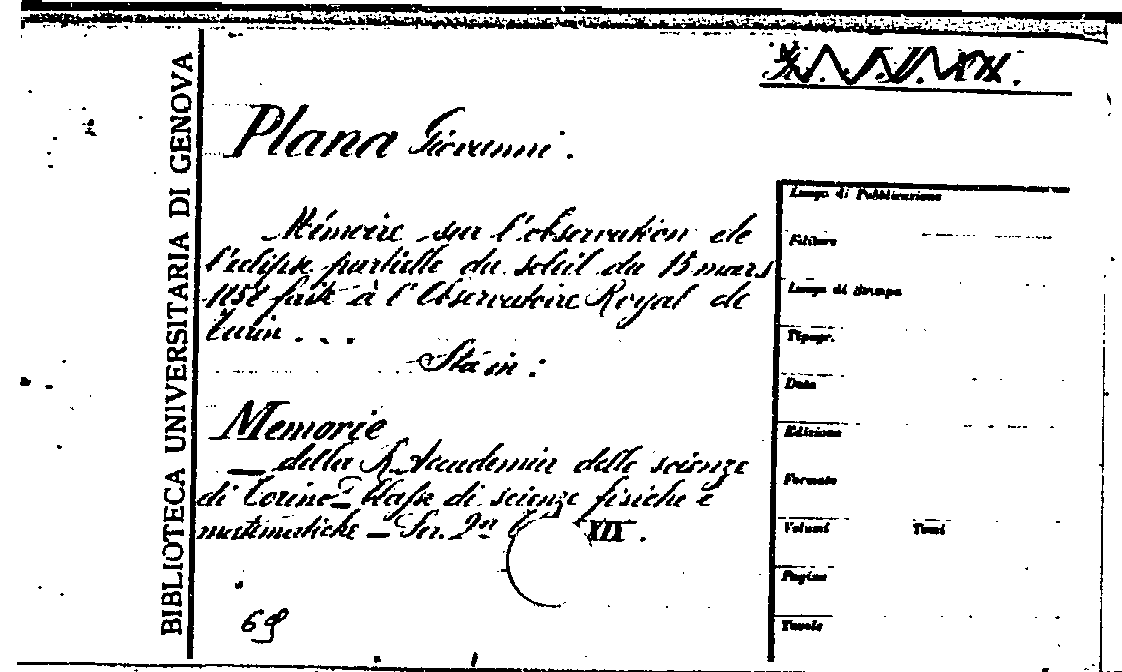 BIBLIOTECA UNIVERSITARIA DI GENOVA
Plana Giovanni.
Mémoire sur l'observation de
l'eclipse partielle du soleil du 15 mars
1858 faite à l'Observatoire Royal de
Turin . . .
Sta in :
Memorie
— della R. Accademia delle scienze
di Torino = Classe di scienze fisiche e
matematiche — Ser. 2ª XIX.
69
Luogo di Pubblicazione
Editore
Luogo di Stampa
Tipogr.
Data
Edizione
Formato
Volumi Tomi
Pagine
Tavole